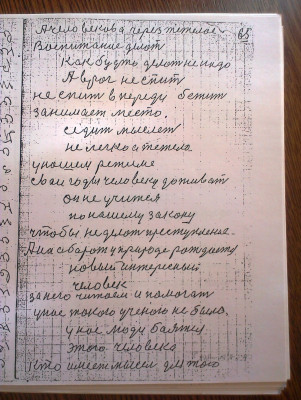 А человекова через тетелое
65
Воспитание делот
Как будто делот не надо
А враг не спит
не спит впереди бетит
занимает место.
седит мыслет
не легко а тетела
у нашим режиме
сваи годы человеку доживат
он не учится
по нашему закону
чтобы не делот преступление.
А на абарот у природе рождаету
новый интересный
человек
за него читаем и помогат
у нас такого ученого не было.
у нас люди баятся
этого человека
кто имеет мысел для того